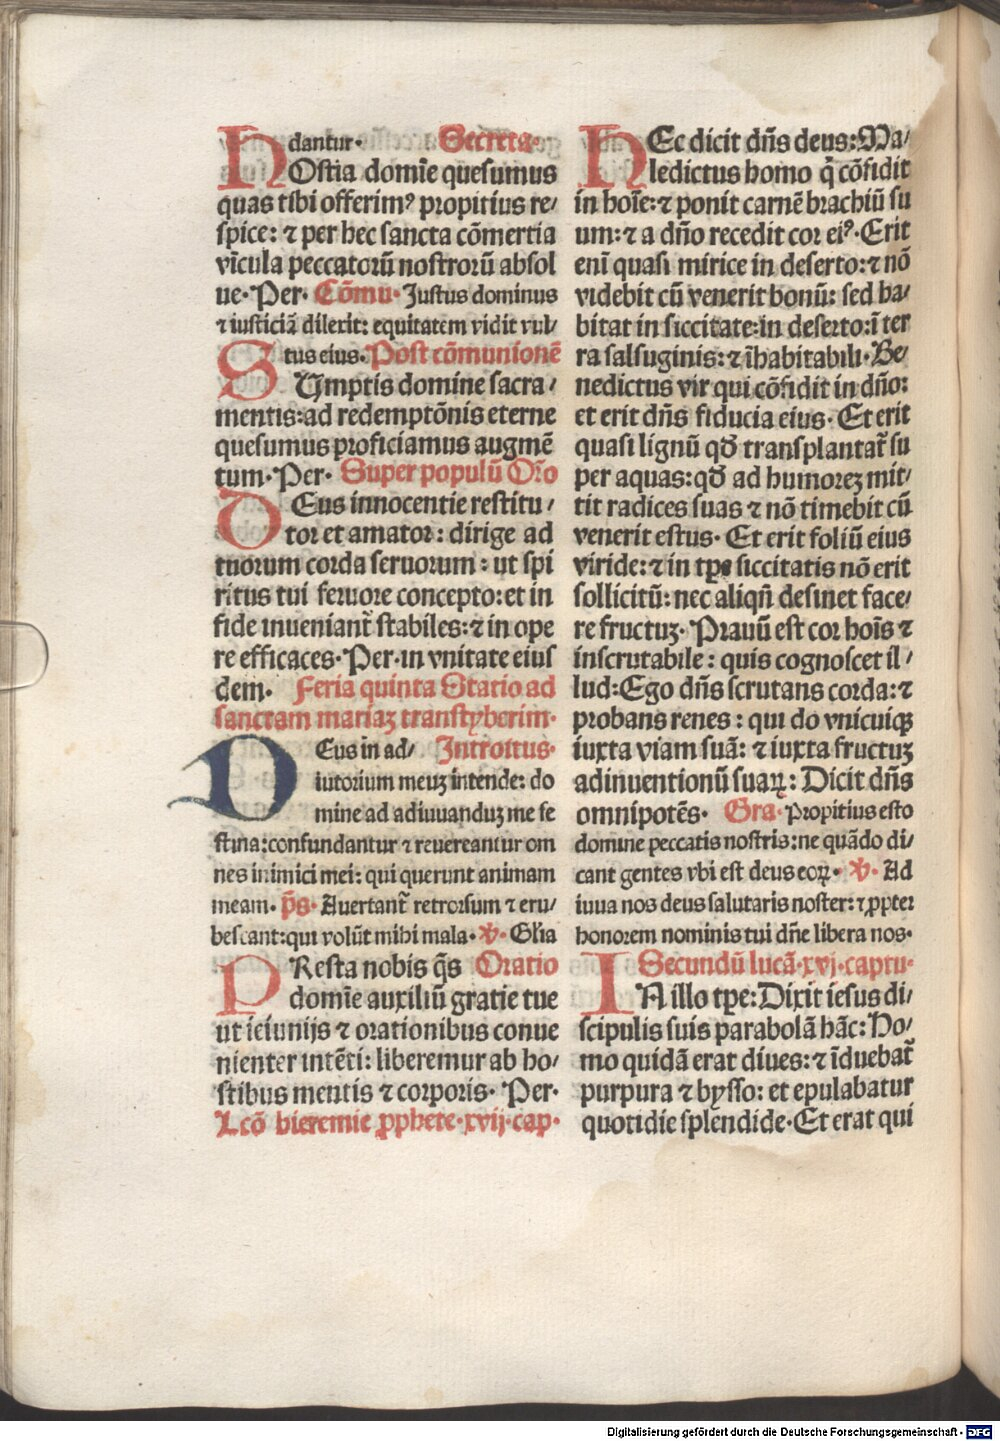 dantur· Secreta·
HOstia domīe quesumus
quas tibi offerimꝰ propitius re/
spice: ⁊ per hec sancta cōmertia
vīcula peccatorū nostrorū absol
ue·Per· Cōmu· Justus dominus
⁊ iusticiā dilexit: equitatem vidit vul/
tus eius·Post cōmunionē
SUmptis domine sacra/
mentis:ad redemptōnis eterne
quesumus proficiamus augmē
tum·Per· Super populū Oro
DEus innocentie restitu/
tor et amator: dirige ad
tuorum corda seruorum: ut spi
ritus tui feruore concepto:et in
fide inueniant̄ stabiles:⁊ in ope
re efficaces·Per·in vnitate eius
dem· Feria quinta Statio ad
sanctam mariaꝫ transtyberim·
DEus in ad/ Introitus·
iutorium meuꝫ intende: do
mine ad adiuuanduꝫ me fe
stina:confundantur ⁊ reuereantur om
nes inimici mei: qui querunt animam
meam· p̄s· Auertant̄ retrorsum ⁊ eru/
bescant:qui volūt mihi mala·℣· Glīa
PResta nobis q̄s Oratio
domīe auxiliū gratie tue
ut ieiunijs ⁊ orationibus conue
nienter intēti: liberemur ab ho/
stibus mentis ⁊ corporis· Per·
Lcō hieremie ꝓphete·xvij·cap·
HEc dicit dn̄s deus:Ma/
ledictus homo q̄ cōfidit
in hoīe:⁊ ponit carnē brachiū su
um:⁊ a dn̄o recedit cor eiꝰ·Erit
enī quasi mirice in deserto:⁊ nō
videbit cū venerit bonū: sed ha/
bitat in siccitate:in deserto:ī ter
ra salsuginis:⁊ īhabitabili·Be/
nedictus vir qui cōfidit in dn̄o:
et erit dn̄s fiducia eius· Et erit
quasi lignū qđ transplantat̄ su
per aquas:qđ ad humoreꝫ mit/
tit radices suas ⁊ nō timebit cū
venerit estus· Et erit foliū eius
viride:⁊ in tp̄e siccitatis nō erit
sollicitū: nec aliqn̄ desinet face/
re fructuꝫ· Prauū est cor hoīs ⁊
inscrutabile: quis cognoscet il/
lud:Ego dn̄s scrutans corda:⁊
probans renes: qui do vnicuiqꝫ
iuxta viam suā: ⁊ iuxta fructuꝫ
adinuentionū suaꝝ: Dicit dn̄s
omnipotēs· Gra·Propitius esto
domine peccatis nostris:ne quādo di/
cant gentes vbi est deus eoꝝ· ℣· Ad
iuua nos deus salutaris noster:⁊ ꝓpter
honorem nominis tui dn̄e libera nos·
Secundū lucā·xvj·captu·
IN illo tp̄e:Dixit iesus di/
scipulis suis parabolā hāc:Ho/
mo quidā erat diues:⁊ īduebat̄
purpura ⁊ bysso: et epulabatur
quotidie splendide·Et erat qui
Digitalisierung gefördert durch die Deutsche Forschungsgemeinschaft - DFG